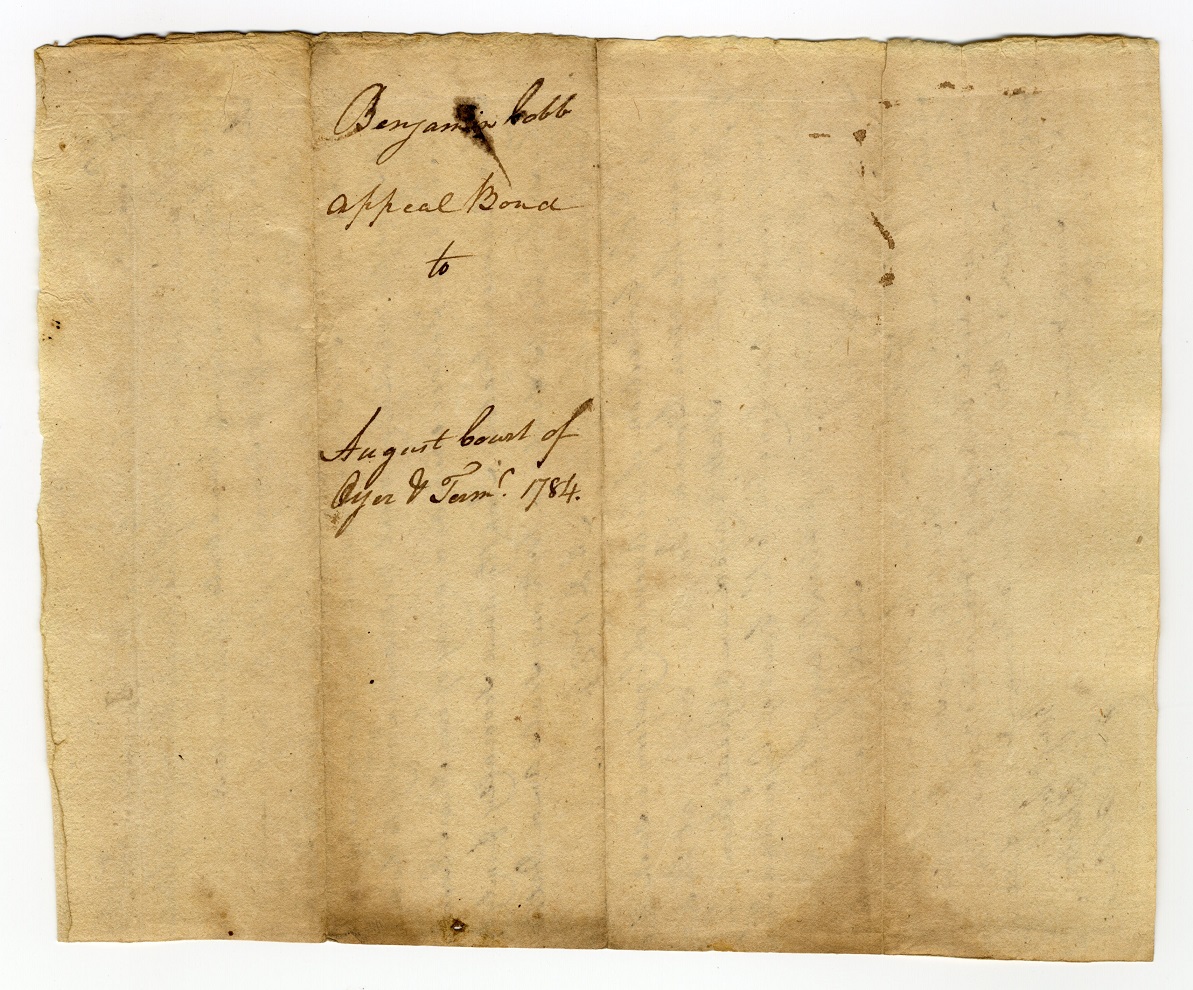 Benjamin Cobb
appeal Bond
to
August Court of
Oyer & Termr. 1784.